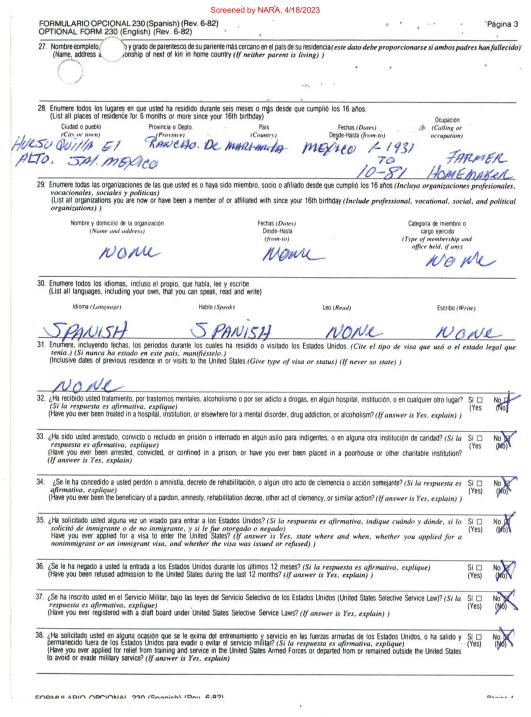 Screened by NARA, 4/18/2023
FORMULARIO OPCIONAL 230 (Spanish) (Rev. 6-82)
OPTIONAL FORM 230 (English) (Rev. 6-82)
Página 3
27. Nombre completo, y grado de parentesco de su pariente más cercano en el país de su residencia (este dato debe proporcionarse si ambos padres han fallecido)
(Name, address a ionship of next of kin in home country (If neither parent is living) )
28. Enumere todos los lugares en que usted ha residido durante seis meses o más desde que cumplió los 16 años.
(List all places of residence for 6 months or more since your 16th birthday)
Ciudad o pueblo Provincia o Depto. País Fechas (Dates) Ocupación
(City or town) (Province) (Country) Desde-Hasta (from-to) (Calling or
occupation)
RANCHO. DE MEXICO 1-1931
ALTO. JAL. MEXICO TO FARMER
10-81 HOMEMAKER
29. Enumere todas las organizaciones de las que usted es o haya sido miembro, socio o afiliado desde que cumplió los 16 años (Incluya organizaciones profesionales,
vocacionales, sociales y políticas)
(List all organizations you are now or have been a member of or affiliated with since your 16th birthday (Include professional, vocational, social, and political
organizations) )
Nombre y domicilio de la organización Fechas (Dates) Categoría de miembro o
(Name and address) Desde-Hasta cargo ejercido
(from-to) (Type of membership and
office held, if any)
NONE NONE NONE
30. Enumere todos los idiomas, incluso el propio, que habla, lee y escribe
(List all languages, including your own, that you can speak, read and write)
Idioma (Language) Habla (Speak) Leo (Read) Escribo (Write)
SPANISH SPANISH NONE NONE
31. Enumere, incluyendo fechas, los períodos durante los cuales ha residido o visitado los Estados Unidos. (Cite el tipo de visa que usó o el estado legal que
tenía.) (Si nunca ha estado en este país, manifiéstelo.)
(Inclusive dates of previous residence in or visits to the United States (Give type of visa or status) (If never so state) )
NONE
32. ¿Ha recibido usted tratamiento, por trastornos mentales, alcoholismo o por ser adicto a drogas, en algún hospital, institución, o en cualquier otro lugar? Sí No
(Si la respuesta es afirmativa, explique) (Yes (No)
(Have you ever been treated in a hospital, institution, or elsewhere for a mental disorder, drug addiction, or alcoholism? (If answer is Yes, explain) )
33. ¿Ha sido usted arrestado, convicto o recluido en prisión o internado en algún asilo para indigentes, o en alguna otra institución de caridad? (Si la Sí No
respuesta es afirmativa, explique) (Yes) (No)
(Have you ever been arrested, convicted, or confined in a prison; or have you ever been placed in a poorhouse or other charitable institution?
(If answer is Yes, explain)
34. ¿Se le ha concedido a usted perdón o amnistía, decreto de rehabilitación, o algún otro acto de clemencia o acción semejante? (Si la respuesta es Sí No
afirmativa, explique) (Yes) (No)
(Have you ever been the beneficiary of a pardon, amnesty, rehabilitation decree, other act of clemency, or similar action? (If answer is Yes, explain) )
35. ¿Ha solicitado usted alguna vez un visado para entrar a los Estados Unidos? (Si la respuesta es afirmativa, indique cuándo y dónde, si lo Sí No
solicitó de inmigrante o de no inmigrante, y si le fue otorgado o negado) (Yes) (No)
Have you ever applied for a visa to enter the United States? (If answer is Yes, state where and when, whether you applied for a
nonimmigrant or an immigrant visa, and whether the visa was issued or refused) )
36. ¿Se le ha negado a usted la entrada a los Estados Unidos durante los últimos 12 meses? (Si la respuesta es afirmativa, explique) Sí No
(Have you been refused admission to the United States during the last 12 months? (If answer is Yes, explain) ) (Yes) (No)
37. ¿Se ha inscrito usted en el Servicio Militar, bajo las leyes del Servicio Selectivo de los Estados Unidos (United States Selective Service Law)? (Si la Sí No
respuesta es afirmativa, explique) (Yes) (No)
(Have you ever registered with a draft board under United States Selective Service Laws? (If answer is Yes, explain) )
38. ¿Ha solicitado usted en alguna ocasión que se le exima del entrenamiento y servicio en las fuerzas armadas de los Estados Unidos, o ha salido y Sí No
permanecido fuera de los Estados Unidos para evadir o evitar el servicio militar? (Si la respuesta es afirmativa, explique) (Yes) (No)
(Have you ever applied for relief from training and service in the United States Armed Forces or departed from or remained outside the United States
to avoid or evade military service? (If answer is Yes, explain)
FORMULARIO OPCIONAL 230 (Spanish) (Rev. 6-82)